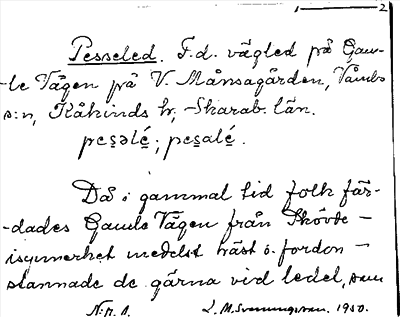 2
Pesseled. F.d. vägled på Gam-
-le Vägen på V. Månsagården, Våmbs
s:n, Kåkinds hr, Skarab. län.
pesəlé; pesalé.
Då i gammal tid folk fär-
-dades Gamle Vägen från Skövde –
isynnerhet medelst häst o. fordon –
stannade de gärna vid ledet, som
L. M. Svenungsson. 1950.